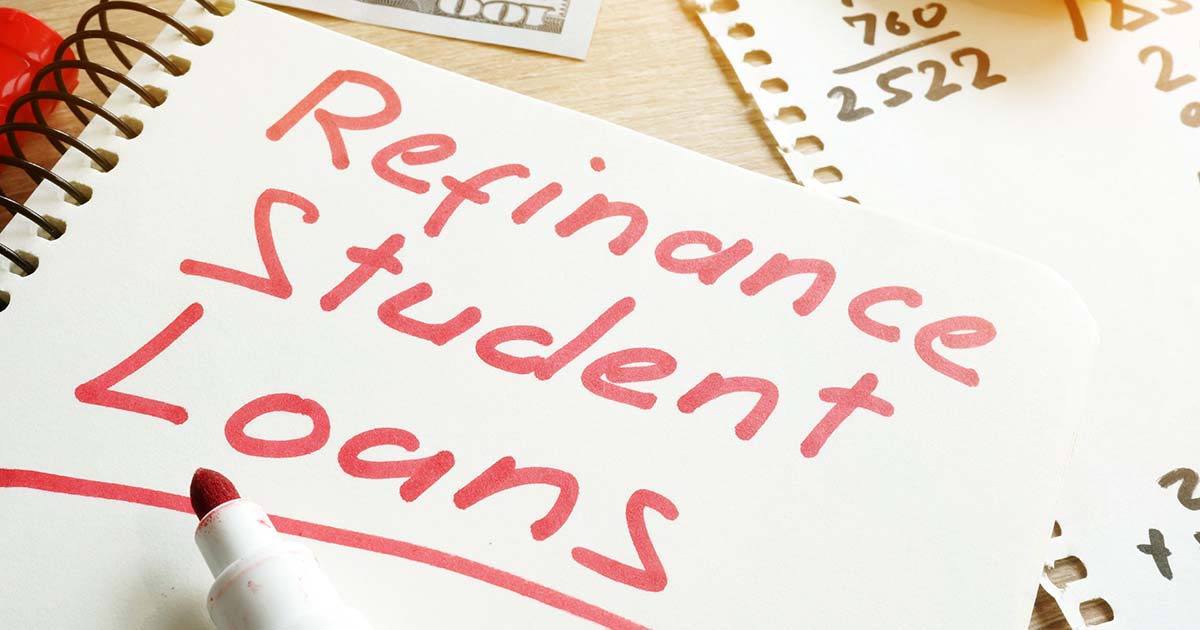 Refinance
Student
Loans
100
760
2522